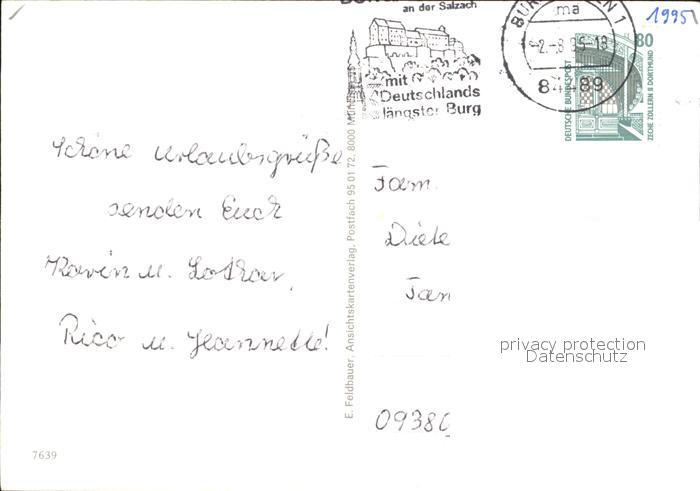 an der Salzach
mit
Deutschlands
längster Burg
1
ma
-2.-8.95-18
84489
1995
80
DEUTSCHE BUNDESPOST
ZECHE ZOLLERN II DORTMUND
Schöne Urlaubsgrüße
senden Euch
Karin u. Lothar,
Rico u. Jeannette!
E. Feldbauer, Ansichtskartenverlag, Postfach 95 01 72, 8000
Fam.
Diete
Tan
0938
privacy protection
Datenschutz
7639